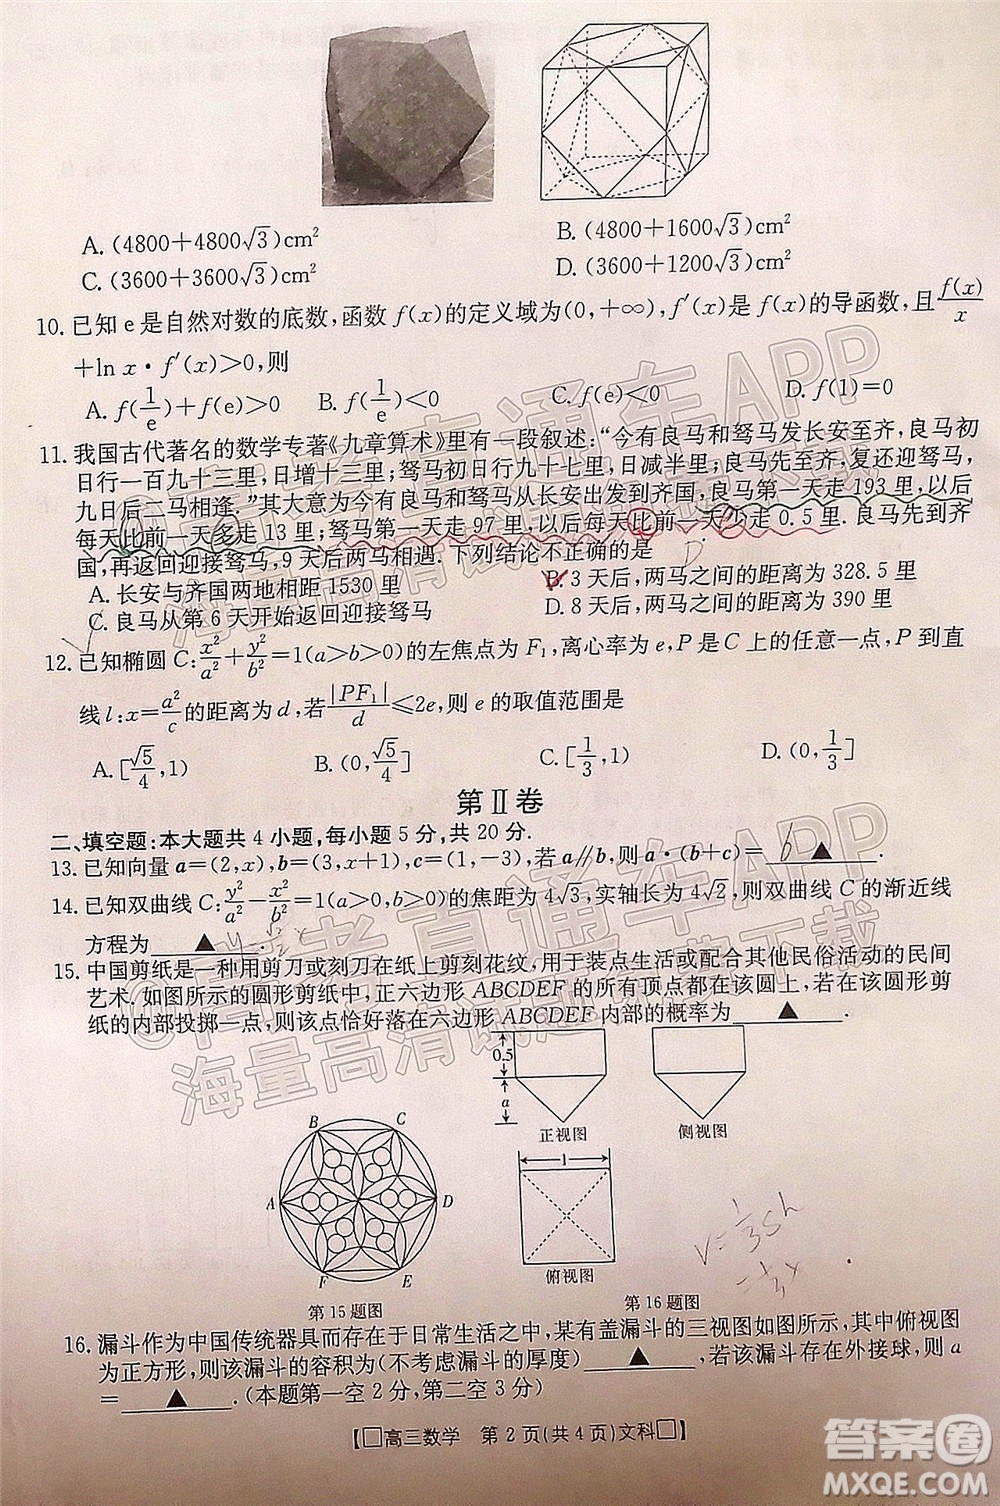 A.(4800+4800√3)cm²
B.(4800+1600√3)cm²
C.(3600+3600√3)cm²
D.(3600+1200√3)cm²
10.已知e是自然对数的底数,函数f(x)的定义域为(0,+∞),f′(x)是f(x)的导函数,且f(x)/x
+ln x·f′(x)>0,则
A.f(1/e)+f(e)>0 B.f(1/e)<0 C.f(e)<0 D.f(1)=0
11.我国古代著名的数学专著《九章算术》里有一段叙述:“今有良马和驽马发长安至齐,良马初
日行一百九十三里,日增十三里;驽马初日行九十七里,日减半里;良马先至齐,复还迎驽马,
九日后二马相逢.”其大意为今有良马和驽马从长安出发到齐国,良马第一天走193里,以后
每天比前一天多走13里;驽马第一天走97里,以后每天比前一天少走0.5里.良马先到齐
国,再返回迎接驽马,9天后两马相遇.下列结论不正确的是
A.长安与齐国两地相距1530里
B.3天后,两马之间的距离为328.5里
C.良马从第6天开始返回迎接驽马
D.8天后,两马之间的距离为390里
12.已知椭圆C:x²/a²+y²/b²=1(a>b>0)的左焦点为F₁,离心率为e,P是C上的任意一点,P到直
线l:x=a²/c的距离为d,若|PF₁|/d≤2e,则e的取值范围是
A.[√5/4,1) B.(0,√5/4] C.[1/3,1) D.(0,1/3]
第Ⅱ卷
二、填空题:本大题共4小题,每小题5分,共20分.
13.已知向量a=(2,x),b=(3,x+1),c=(1,-3),若a∥b,则a·(b+c)= ▲ .
14.已知双曲线C:y²/a²-x²/b²=1的焦距为4√3,实轴长为4√2,则双曲线C的渐近线
方程为 ▲ .
15.中国剪纸是一种用剪刀或刻刀在纸上剪刻花纹,用于装点生活或配合其他民俗活动的民间
艺术.如图所示的圆形剪纸中,正六边形ABCDEF的所有顶点都在该圆上,若在该圆形剪
纸的内部投掷一点,则该点恰好落在六边形ABCDEF内部的概率为 ▲ .
0.5
a
正视图
侧视图
B C
A D
F E
1
俯视图
V=1/3Sh
第15题图
第16题图
16.漏斗作为中国传统器具而存在于日常生活之中,某有盖漏斗的三视图如图所示,其中俯视图
为正方形,则该漏斗的容积为(不考虑漏斗的厚度) ▲ ,若该漏斗存在外接球,则a
= ▲ .(本题第一空2分,第二空3分)
【□高三数学 第2页(共4页)文科□】
@高考直通车APP
海量高清试题免费下载
@高考直通车APP
海量高清试题免费下载
答案圈
MXQE.COM